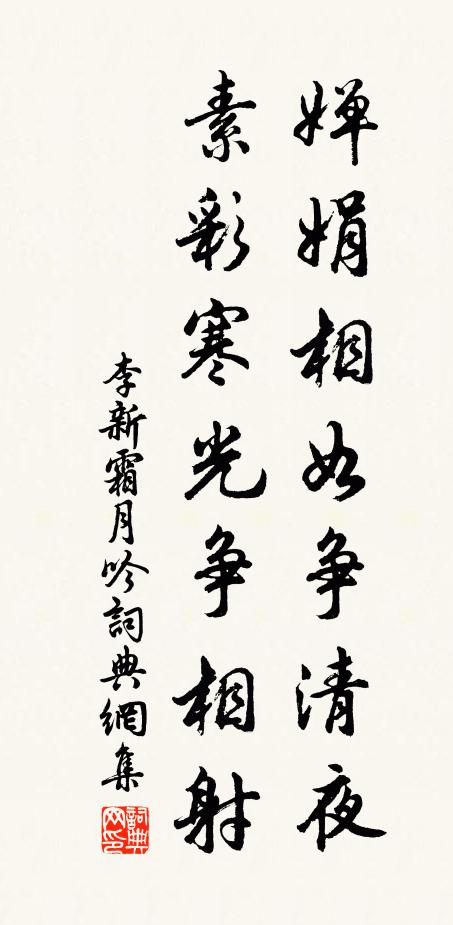 婵娟相如争清夜
素彩寒光争相射
李新霜月吟詞典網集
詞典
网印